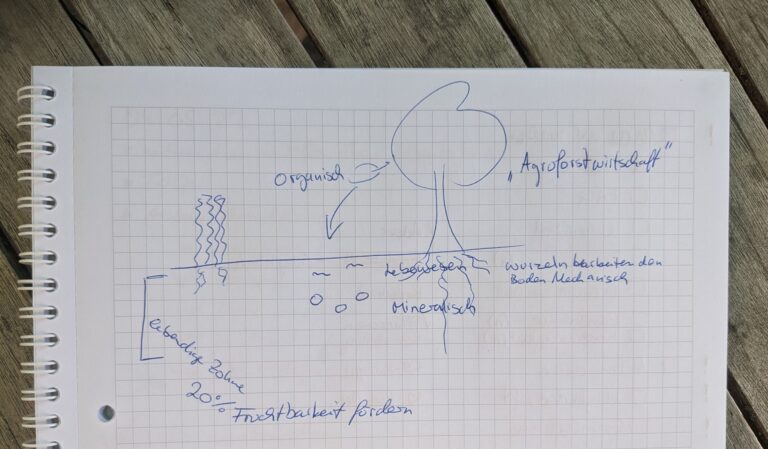 „Agroforstwirtschaft“
Organisch
Lebewesen
Wurzeln bearbeiten den
Boden Mechanisch
Mineralisch
lebendige Zohne
20%
Fruchtbarkeit fördern